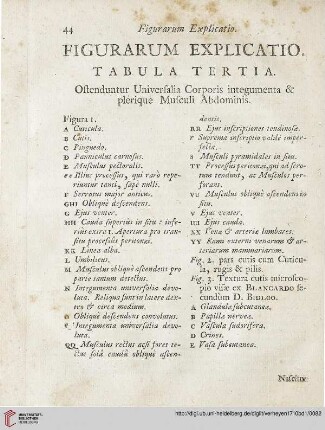 44 Figurarum Explicatio.
FIGURARUM EXPLICATIO.
TABULA TERTIA.
Oſtenduntur Univerſalia Corporis integumenta &
plerique Muſculi Abdominis.
Figura 1.
A Cuticula.
B Cutis.
C Pinguedo.
D Panniculus carnoſus.
E Muſculus pectoralis.
ee Illius proceſſus, qui rarò repe-
riuntur tanti, ſæpè nulli.
F Serratus major anticus.
GHI Obliquè deſcendens.
G Ejus venter.
HH Cauda ſuperius in ſitu: inſe-
riùs extra I. Apertura pro tran-
ſitu proceſſûs peritonæi.
KK Linea alba.
L Umbilicus.
M Muſculus obliquè aſcendens pro
parte tantùm detectus.
N Integumenta univerſalia devo-
luta. Reliqua ſunt in latere dex-
tro & circa medium.
O Obliquè deſcendens convolutus.
P Integumenta univerſalia devo-
luta.
QQ Muſculus rectus acſi foret te-
ctus ſolâ caudâ obliquè aſcen-
dentis.
RR Ejus inſcriptiones tendinoſæ.
r Suprema inſcriptio valdè imper-
fecta.
S Muſculi pyramidales in ſitu.
TT Proceſſus peritonæi, qui ad ſcro-
tum tendunt, ac Muſculos per-
forant.
VI Muſculus obliquè aſcendens in
ſitu.
V Ejus venter.
II Ejus cauda.
XX Venæ & arteriæ lumbares.
YY Rami externi venarum & ar-
teriarum mammariarum.
Fig. 2. pars cutis cum Cuticu-
la, rugis & pilis.
Fig. 3. Textura cutis microſco-
pio viſæ ex BLANCARDO ſe-
cundùm D. BIDLOO.
A Glandulæ ſubcutaneæ.
B Papillæ nerveæ.
C Vaſcula ſudorifera.
D Crines.
E Vaſa ſubcutanea.
http://digi.ub.uni-heidelberg.de/diglit/verheyen1710bd1/0082